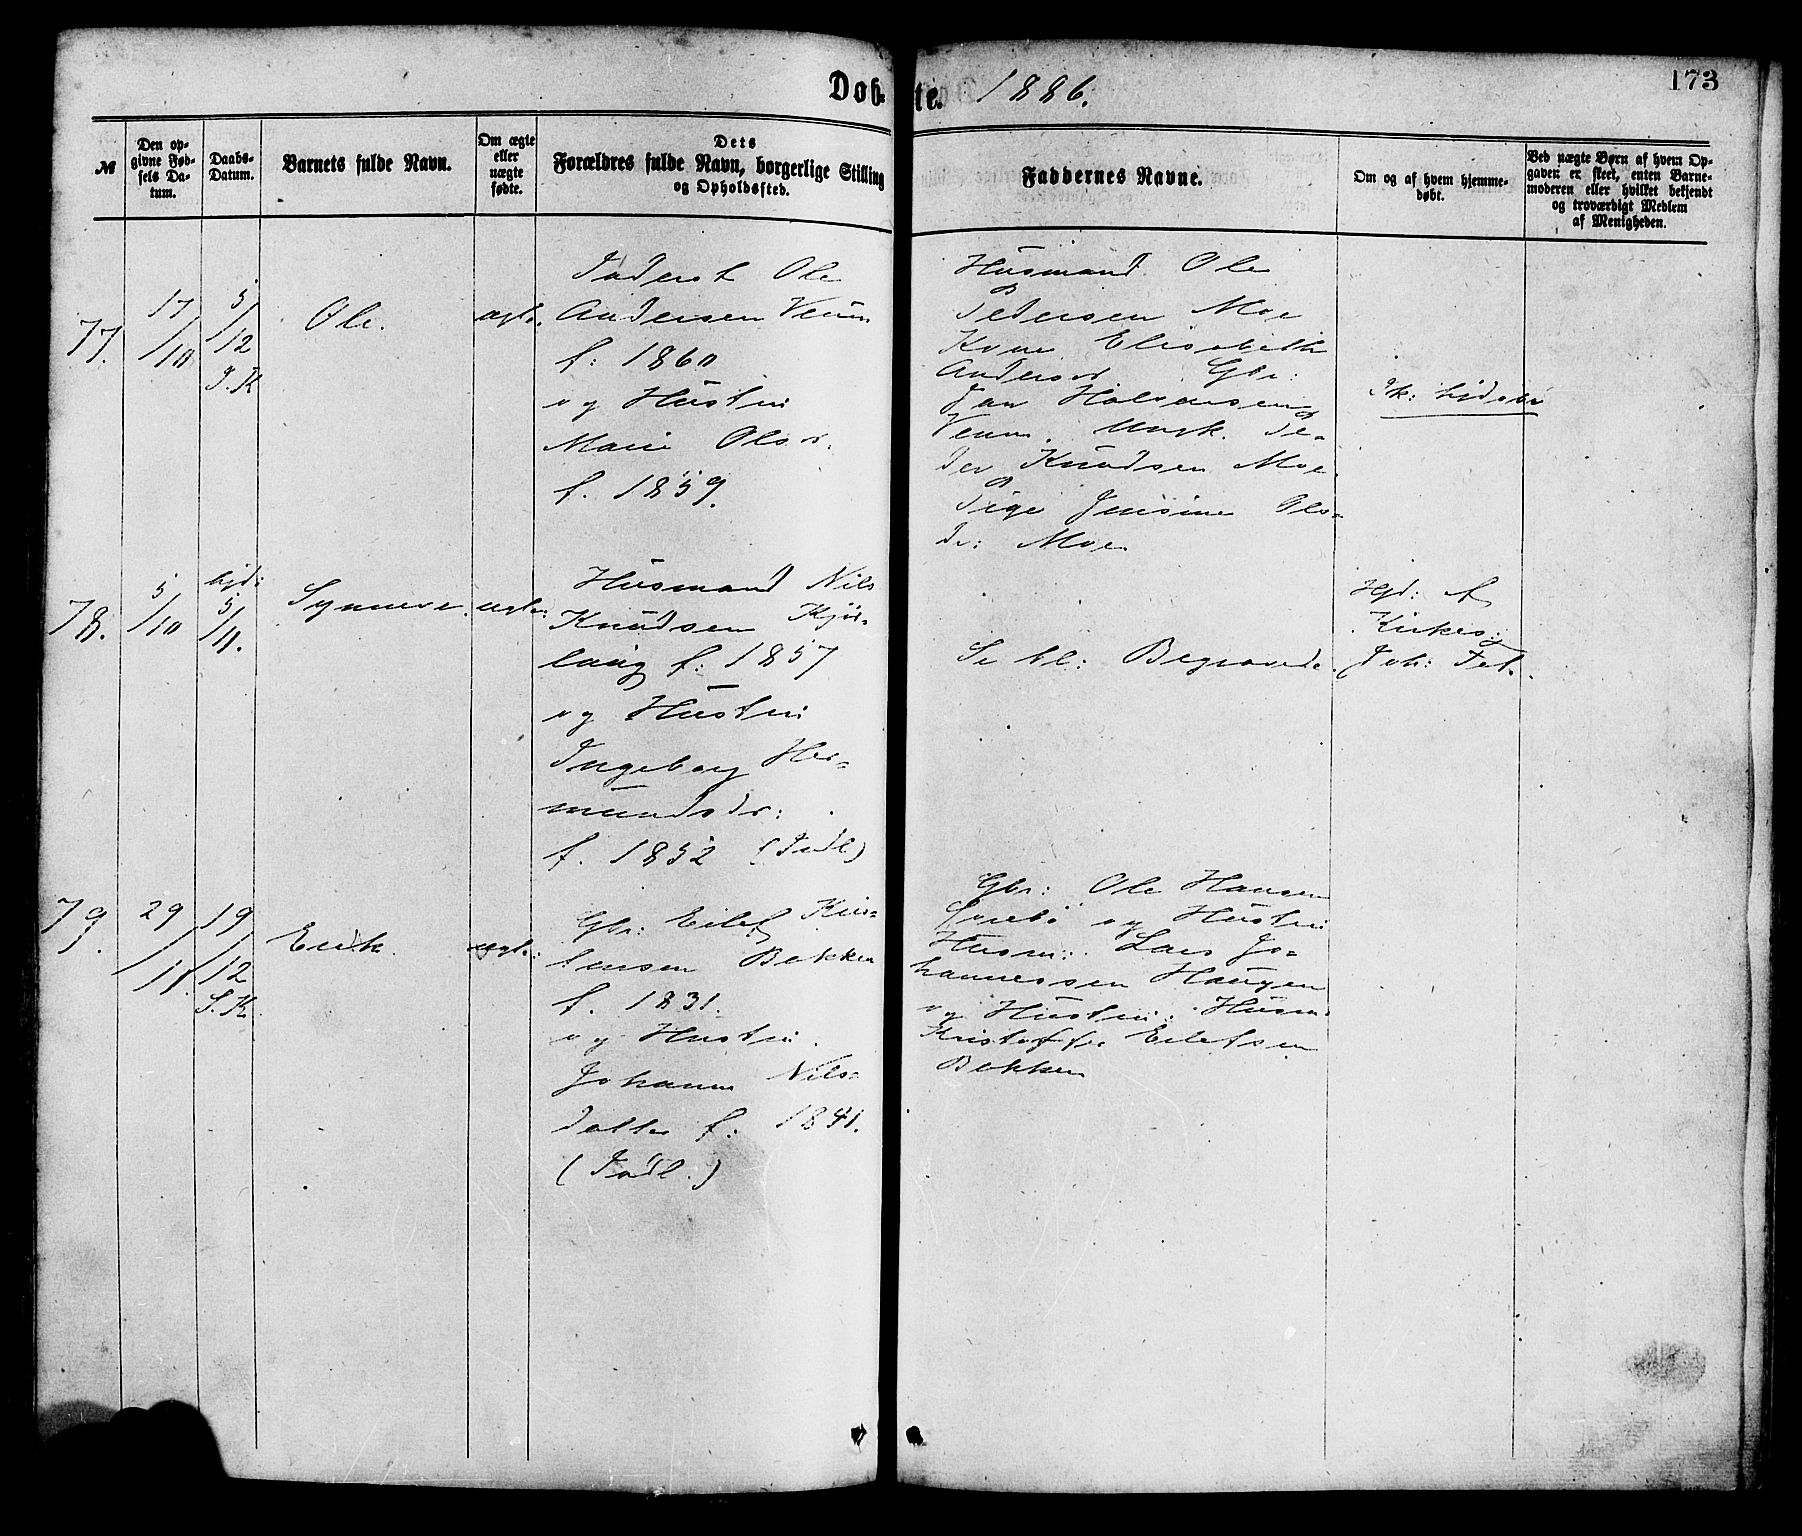 Døb-te. 1886.
173
№
Den op-
givne Fød-
sels Da-
tum.
Daabs-
Datum.
Barnets fulde Navn.
Om ægte
eller
uægte
fødte.
Dets
Forældres fulde Navn, borgerlige Stilling
og Opholdssted.
Faddernes Navne.
Om og af hvem hjemme-
døbt.
Ved uægte Børn af hvem Op-
gaven er skeet, enten Barne-
moderen eller hvilket bekjendt
og troværdigt Medlem
af Menigheden.
77.
17/10
5/12
Ole.
ægte.
Ole
Andersen Venum
f: 1860
og Hustru
Marie Olsdr.
f. 1859.
Husmand Ole
Pedersen Moe
Kone Elisabeth
Andersd. Gbr:
Jan Halvorsen
Venum. Ungk. Pe-
der Knudsen Moe
Pige Jensine Ols-
dr: Moe
Ik: hjdøbt
78.
5/10
hjd:
5/11.
Synneve.
ægte:
Husmand Nils
Knudsen Kjör-
laug f: 1857
og Hustru
Ingeborg Her-
mundsdr:
f. 1852 (Indl)
Se bl: Begravede.
Hjd: af
Kirkes:
Joh: Fet.
79.
29/11.
19/12
S.K.
Erik.
ægte:
Gbr: Eilef Kris-
tensen Bakken
f. 1831.
og Hustru
Johanne Nils-
datter f: 1841.
(Indl.)
Gbr: Ole Hansen
og Hustru
Husm: Lars Jo-
hannessen Haugen
og Hustru: Husm:
Kristoffer Eilefsen
Bakken